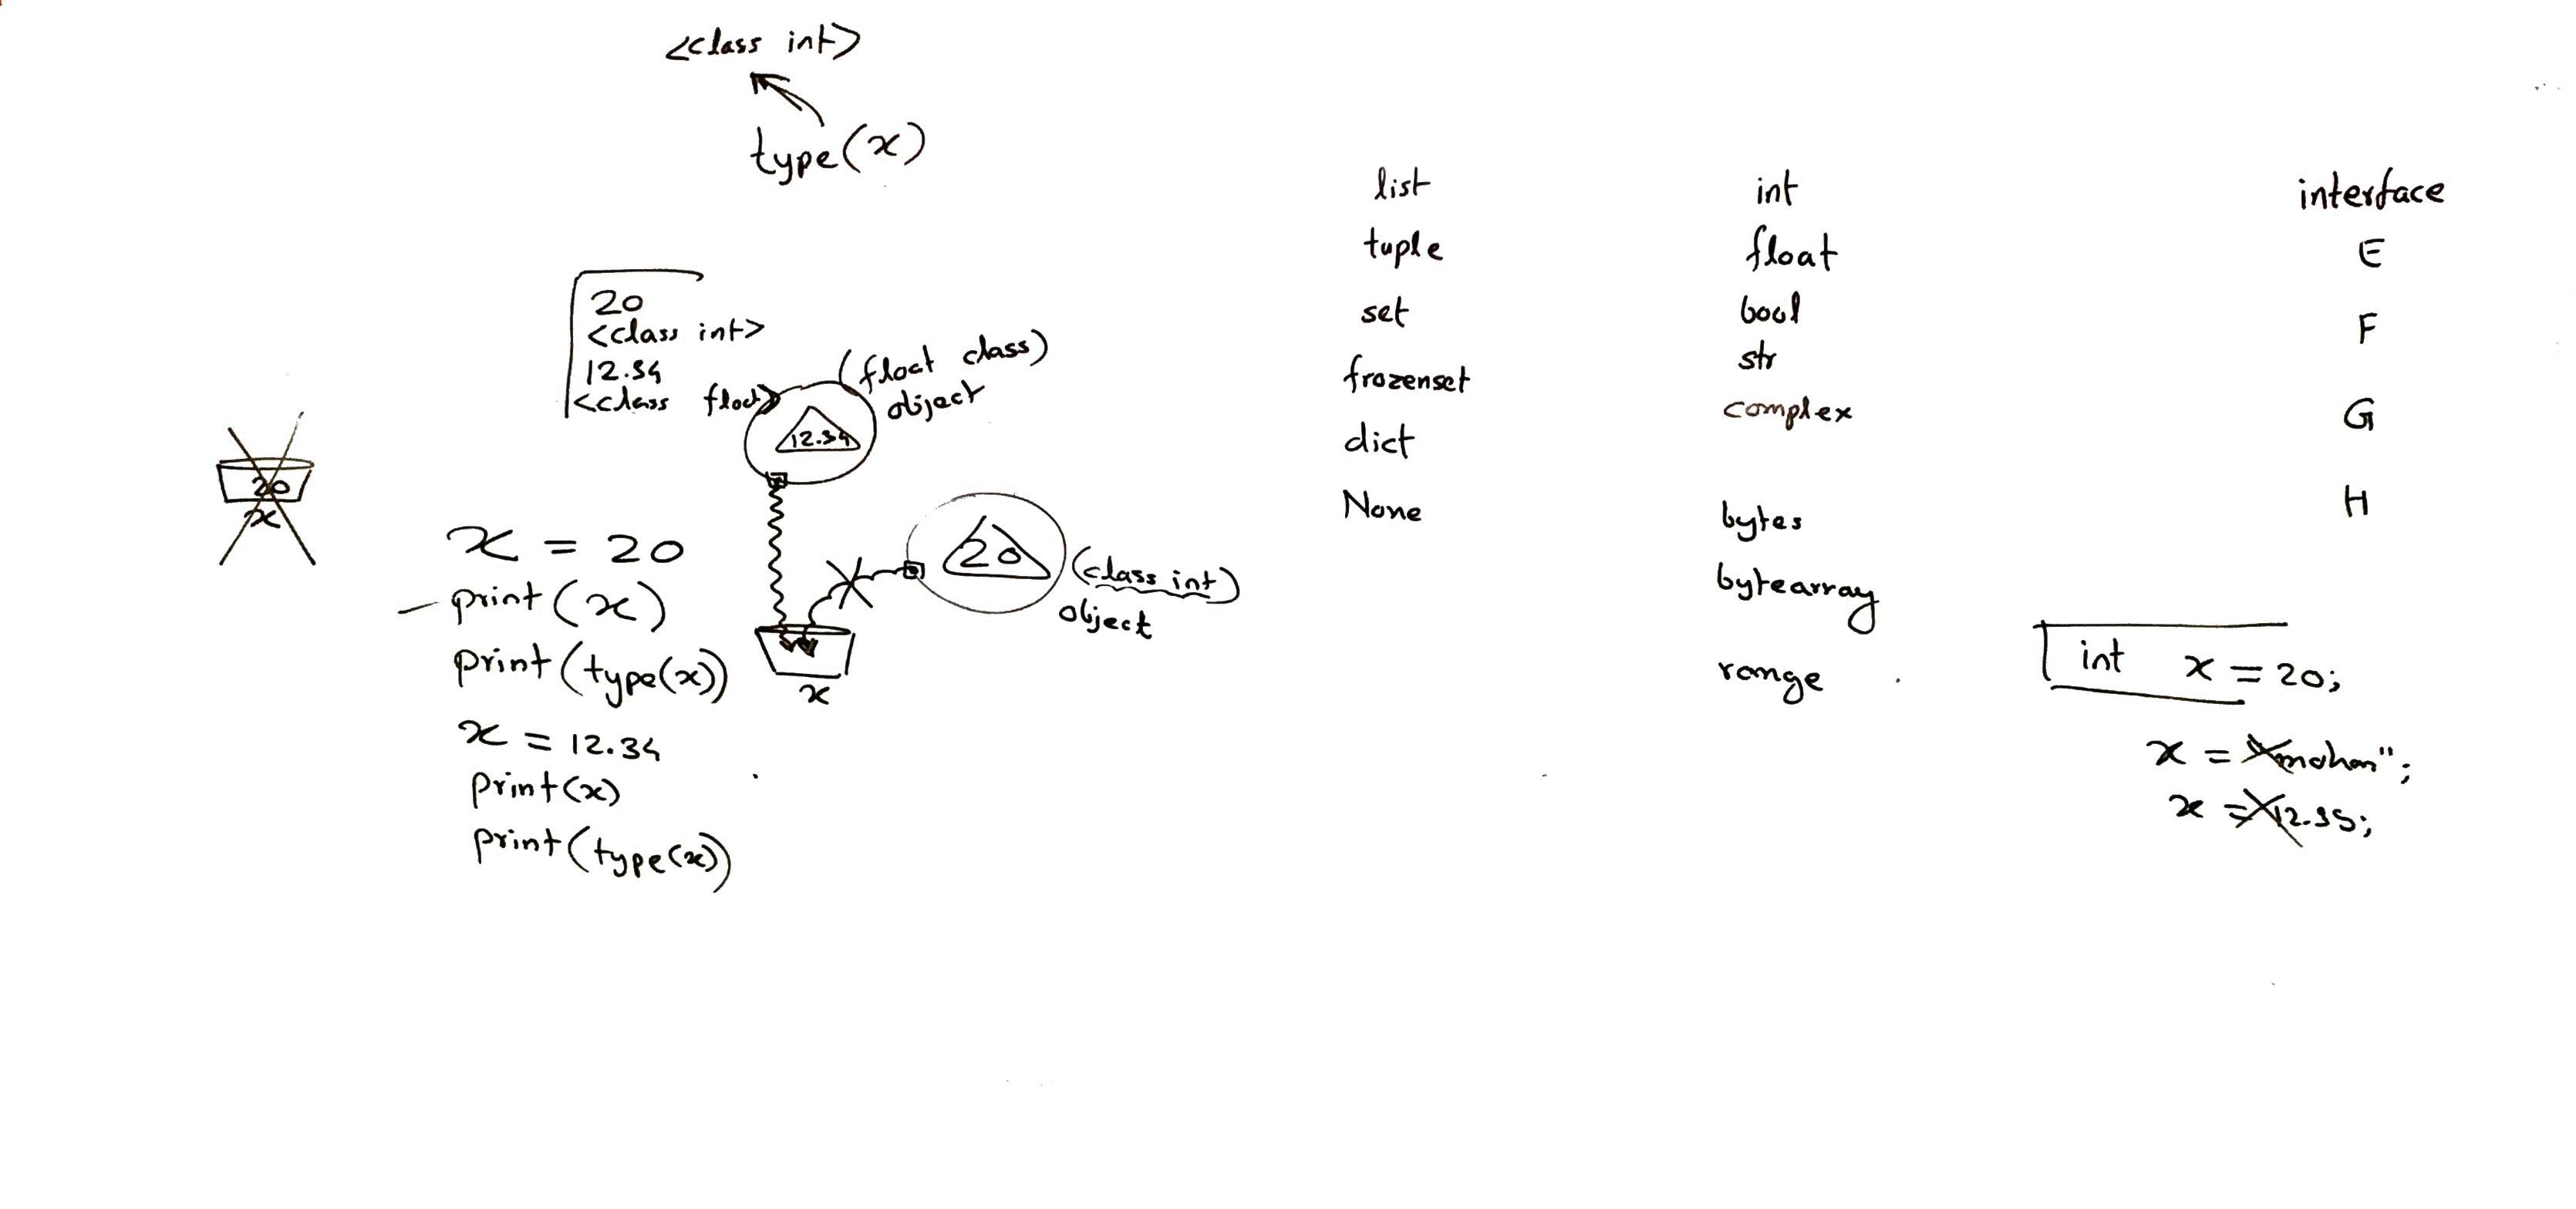 <class int>
type(x)
20
<class int>
12.34
<class float>
(float class)
object
12.34
20
x
20
(class int)
object
x
x = 20
print(x)
print(type(x))
x = 12.34
print(x)
print(type(x))
list
tuple
set
frozenset
dict
None
int
float
bool
str
complex
bytes
bytearray
range
interface
E
F
G
H
int x = 20;
x = "mohan";
x = 12.35;